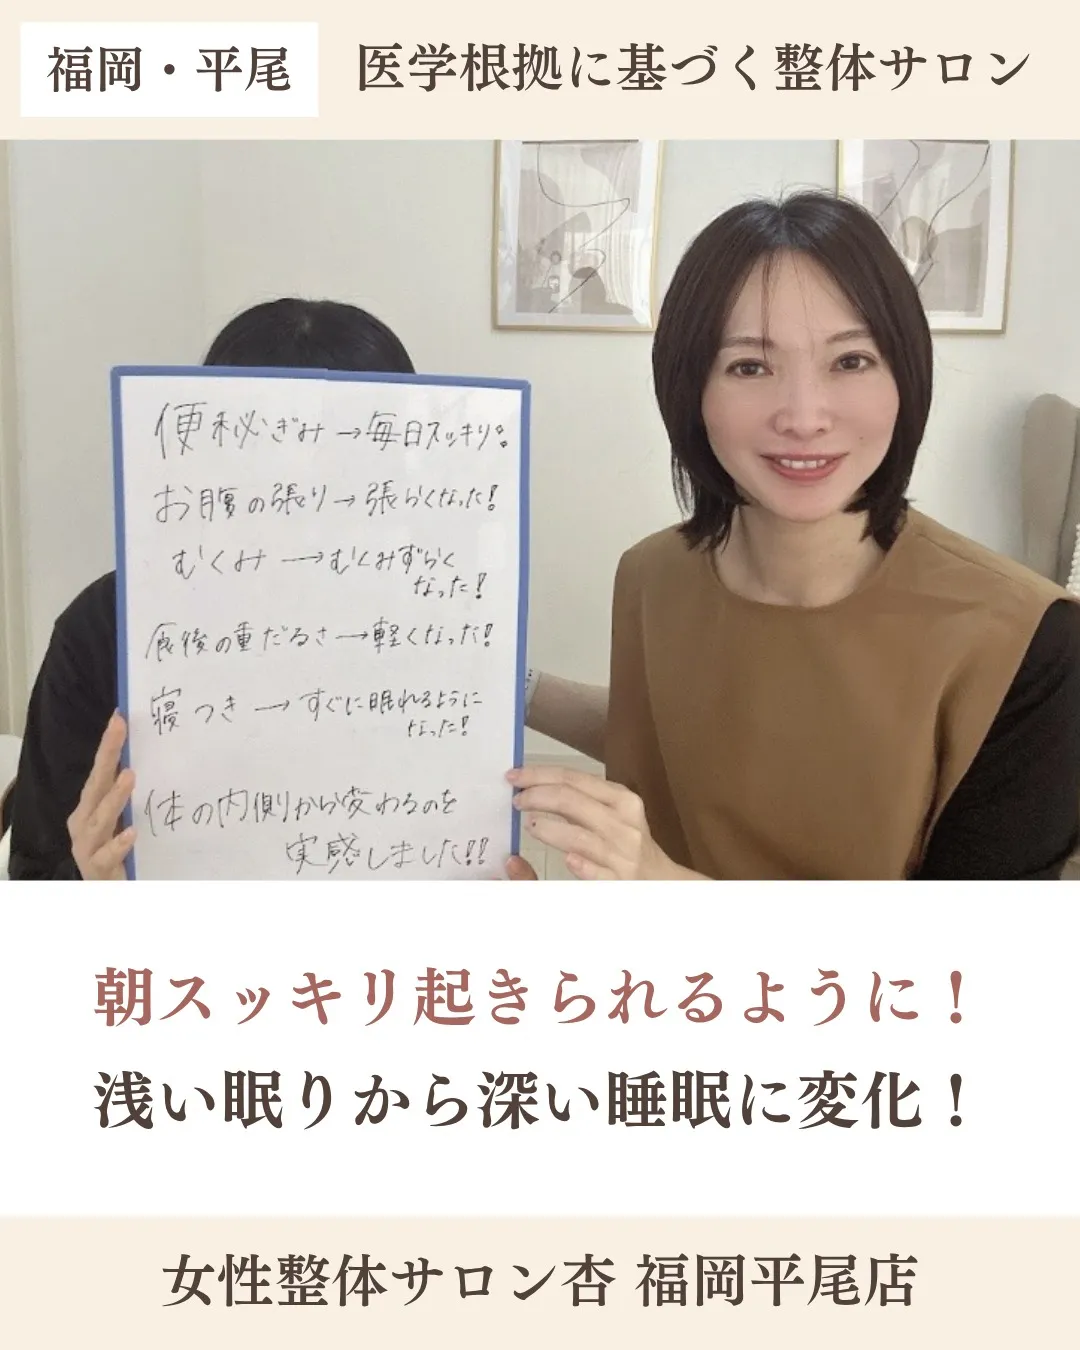 福岡・平尾
医学根拠に基づく整体サロン
便秘ぎみ→毎日スッキリ!!
お腹の張り→張らなくなった!
むくみ→むくみずらく
なった!
食後の重だるさ→軽くなった!
寝つき→すぐに眠れるように
なった!
体の内側から変わるのを
実感しました!!
朝スッキリ起きられるように！
浅い眠りから深い睡眠に変化！
女性整体サロン杏 福岡平尾店